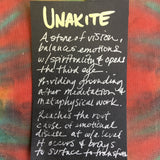 UNAKITE
A stone of vision,
balances emotions
w/spirituality & opens
the third eye.
Providing grounding
after meditation &
metaphysical work.
Reaches the root
cause of emotional
disease at w/e level
it occurs & brings
to surface to transform